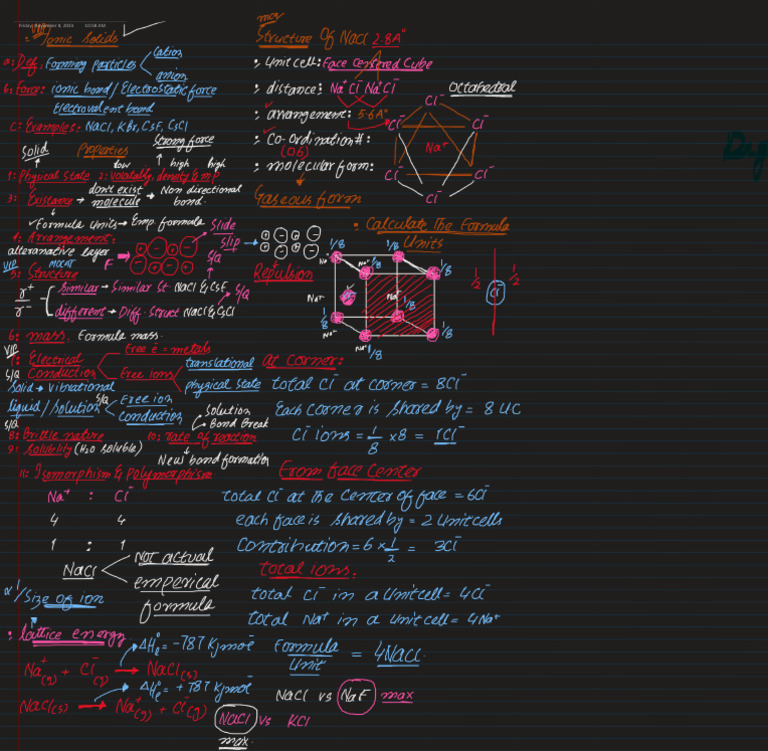 Friday, November 8, 2024 10:58 AM
VIP
Ionic Solids
a: Def: Forming particles
Cation
anion
b: Force: ionic bond/Electrostatic force
Electrovalent bond
C: Examples: NaCl, KBr, CsF, CsCl
Solid Properties Strong force
low high high
1: Physical State 2: Volatality, density & mp
3: Existance → don't exist molecule → Non directional bond.
✓ Formula Units → Emp. formula
4: Arrangement:
alteranative layer
F
Slide
Slip
S/Q
VIP MDCAT
5: Structure
r⁺/r⁻
Similar → Similar St. NaCl & CsF S/Q
different → Diff. Struct NaCl & CsCl
6: mass. Formula mass.
VIP
7: Electrical Conduction
Free e⁻ = metals
Free ions
translational
physical State
S/Q
Solid → vibrational
liquid/Solution S/Q Free ion conduction
S/Q
8: Brittle nature
9: Solubility (H₂O soluble)
10: rate of reaction
Solution
Bond Break
New bond formation
11: Isomorphism & Polymorphism
Na⁺ : Cl⁻
4 4
1 : 1
NaCl
Not actual
emperical
formula
∝ 1/Size of ion
: lattice energy.
ΔH°ₗ = -787 Kjmol⁻
Na⁺(g) + Cl⁻(g) → NaCl(s)
ΔH°ₗ = +787 Kjmol⁻
NaCl(s) → Na⁺(g) + Cl⁻(g)
mcq
Structure Of NaCl 2.8A°
: Unit cell: Face Centered Cube
: distance: Na⁺ Cl⁻ Na⁺ Cl⁻
: arrangement: 5.6A°
: Co-Ordination #: (06)
: molecular form:
Gaseous form
Octahedral
Cl⁻
Cl⁻ Cl⁻
Na⁺
Cl⁻ Cl⁻
Cl⁻
: Calculate The Formula
Units
Repulsion
1/8 1/8
Na⁺ Na⁺ 1/8 1/8
Na⁺ Na⁺
1/8 1/8
1/8
Na⁺ Na⁺ 1/8
1/2 Cl⁻ 1/2
at corner:
total Cl⁻ at corner = 8Cl⁻
Each Corner is shared by = 8 UC
Cl⁻ ions = 1/8 × 8 = 1Cl⁻
From face Center
total Cl⁻ at the Center of face = 6Cl⁻
each face is shared by = 2 Unitcells
Contribution = 6 × 1/2 = 3Cl⁻
total ions:
total Cl⁻ in a Unitcell = 4Cl⁻
total Na⁺ in a Unitcell = 4Na⁺
Formula Unit = 4NaCl.
NaCl vs NaF max
NaCl vs KCl
max.